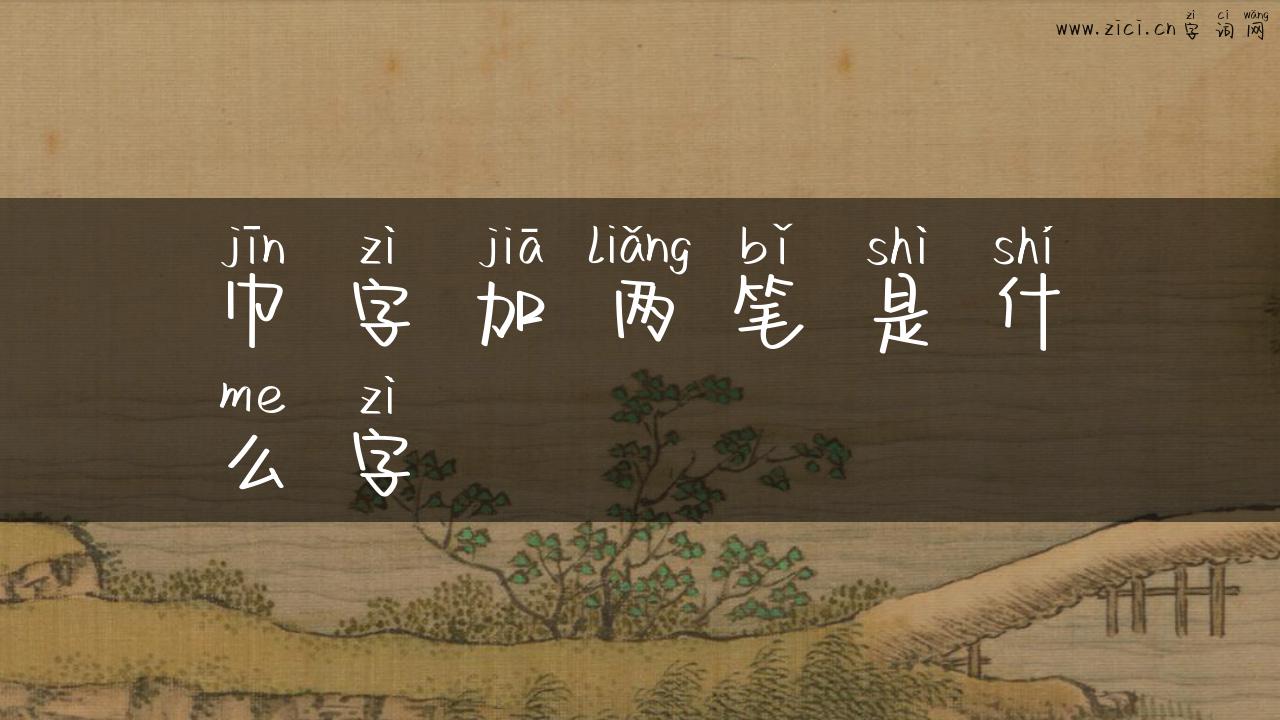 www.zici.cn zì cí wǎng
字词网
jīn zì jiā liǎng bǐ shì shí
巾字加两笔是什
me zì
么字